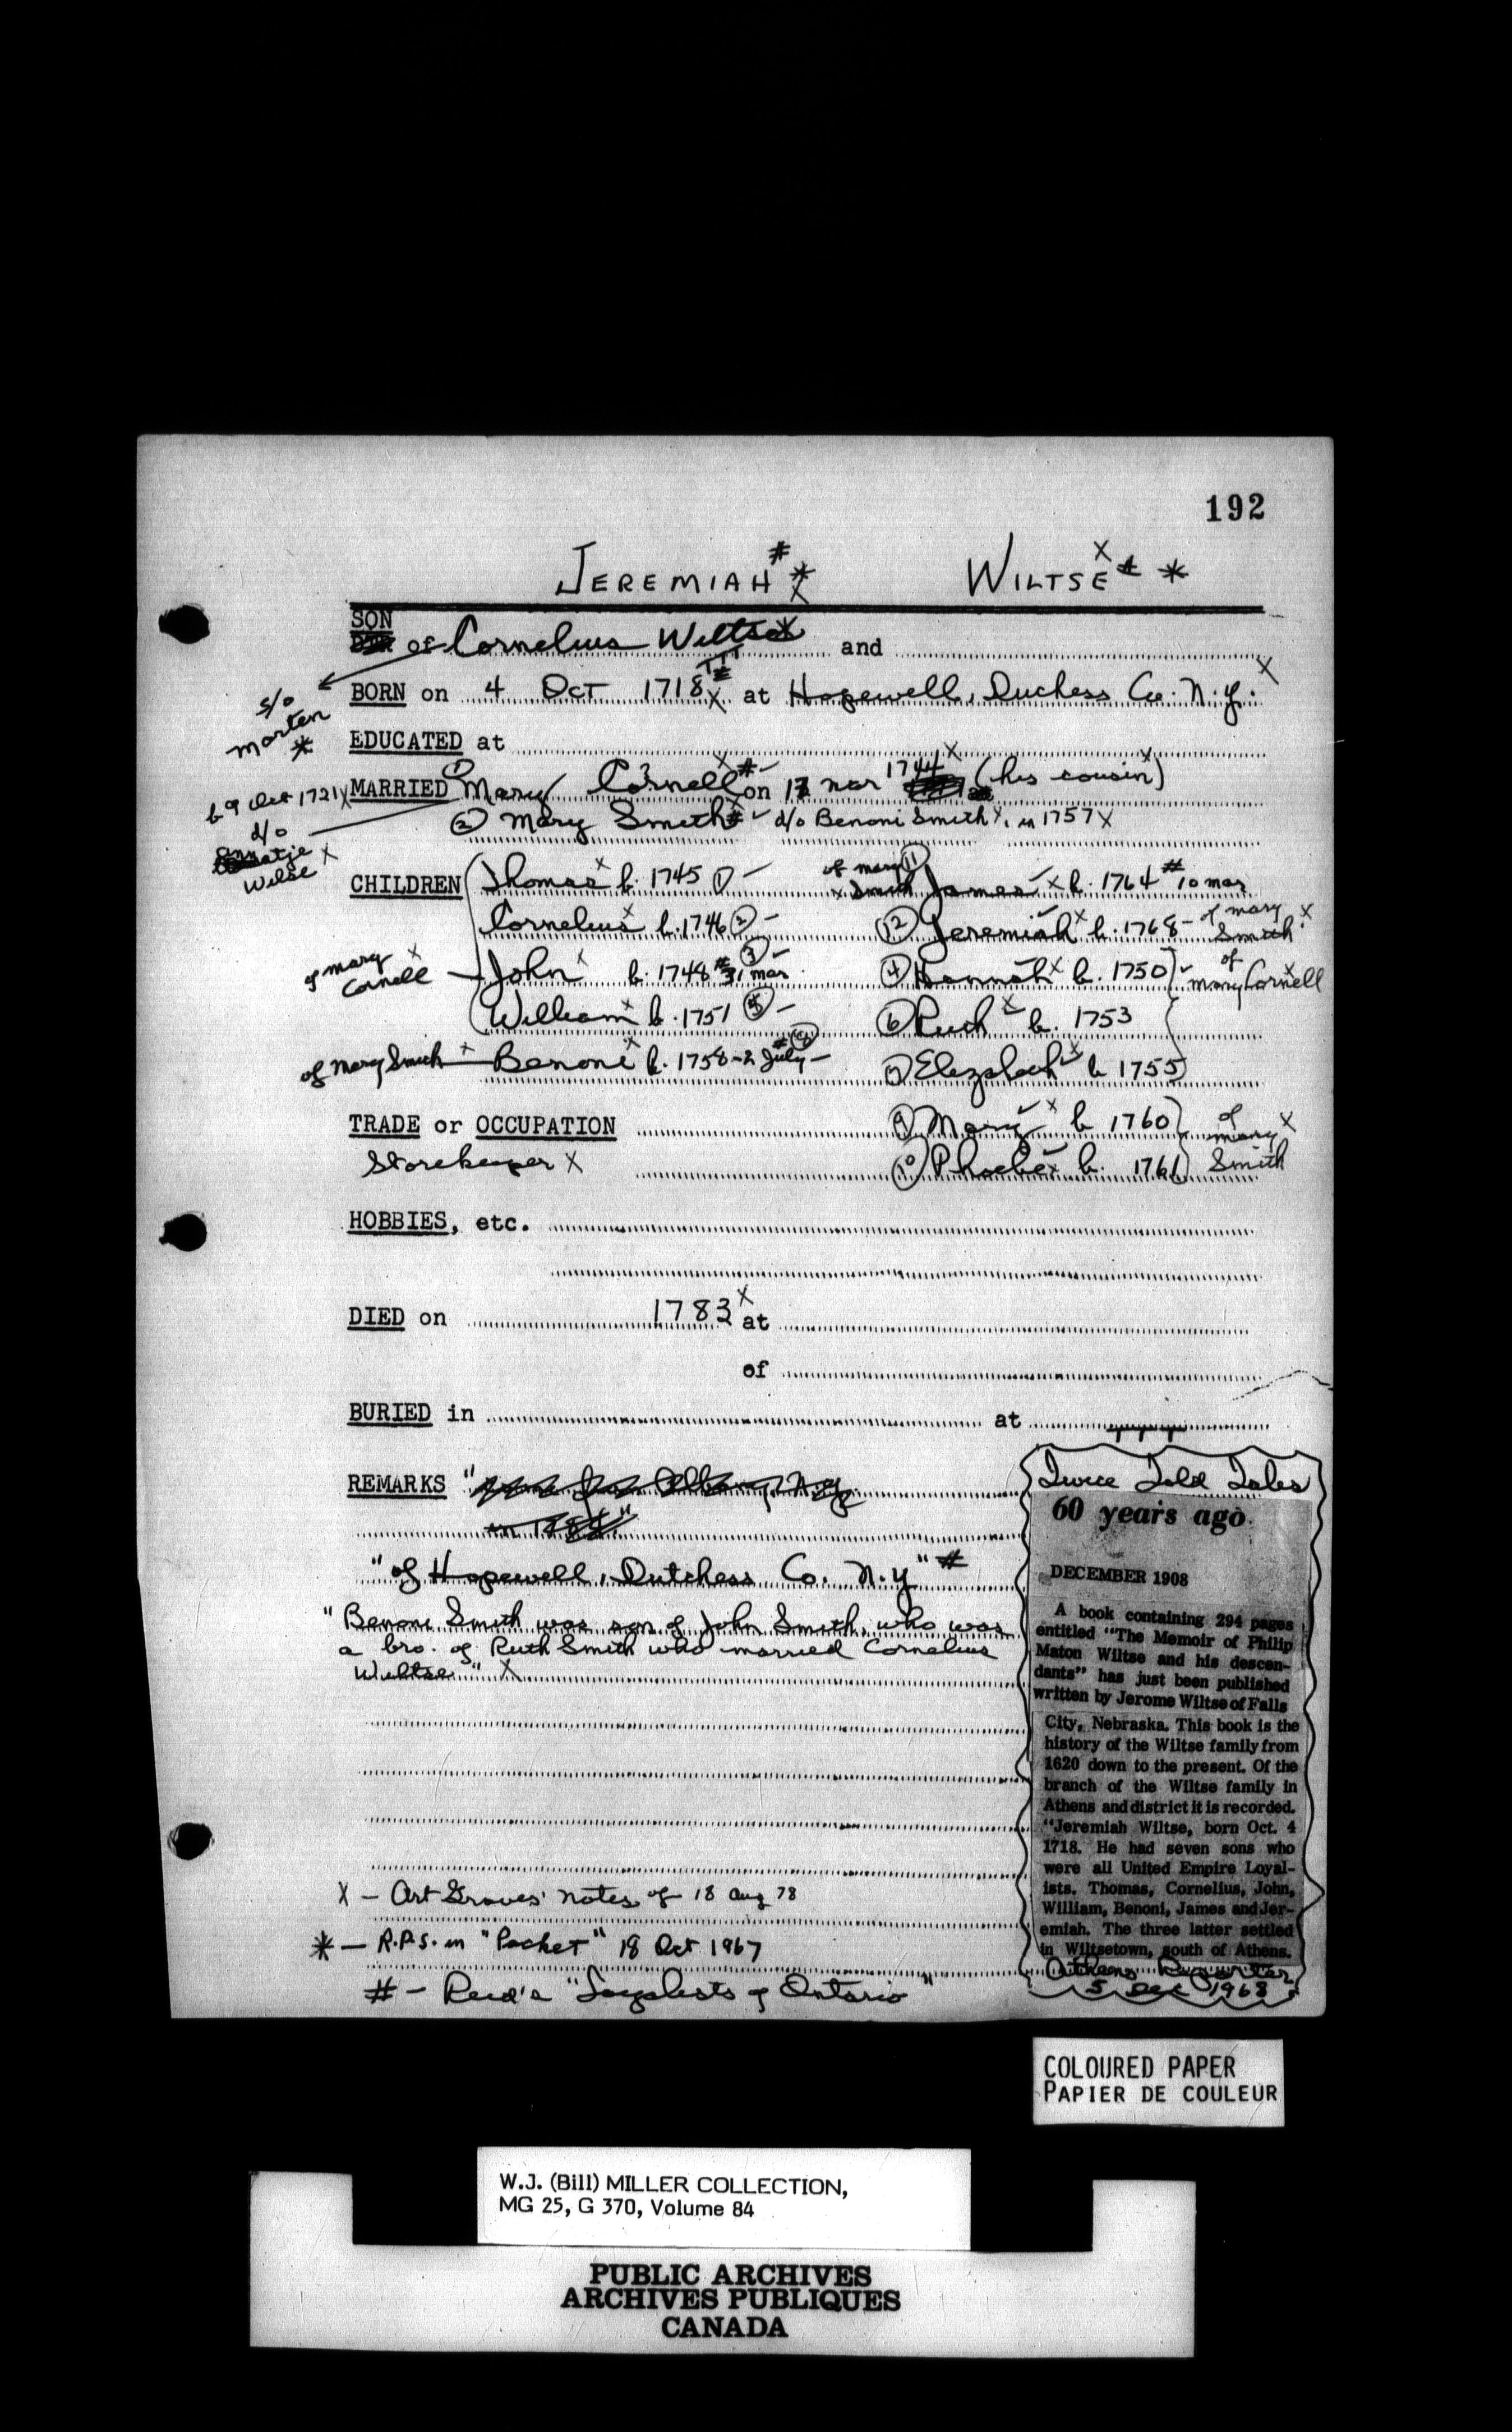 192
JEREMIAH # * X WILTSE X # *
SON
of Cornelius Wiltse X and
s/o
Marten
*
BORN on 4 Oct 1718 # X at Hopewell, Duchess Co. N.Y. X
EDUCATED at
b 9 Oct 1721 X
d/o
atje X
Wilse
MARRIED ① Mary Cornell X # - on 17 Mar 1744 X (his cousin X)
② Mary Smith X # ✓ d/o Benoni Smith X, in 1757 X
CHILDREN Thomas X b. 1745 ① -
Cornelius X b. 1746 ② -
of Mary X
Cornell
John X b. 1748 # 31 Mar ③ -
William X b. 1751 ⑤ -
of Mary Smith X Benoni X b. 1758 - 2 July # ⑧ -
of Mary
X Smith
⑪ James ✓ X b. 1764 # 10 Mar
⑫ Jeremiah ✓ X b. 1768 - of Mary X
Smith
④ Hannah X b. 1750 ✓ of
Mary Cornell X
⑥ Ruth X b. 1753
⑦ Elizabeth X b 1755
TRADE or OCCUPATION
Storekeeper X
⑨ Mary ✓ X b 1760 of
Mary X
⑩ Phoebe X b. 1761 Smith
HOBBIES, etc.
DIED on 1783 X at
of
BURIED in at
REMARKS
"of Hopewell, Dutchess Co. N.Y" #
"Benoni Smith was son of John Smith, who was
a bro. of Ruth Smith who married Cornelius
Wiltse" X
X - Art Graves' notes of 18 Aug 78
* - R.P.S. in "Packet" 18 Oct 1967
# - Reid's "Loyalists of Ontario"
Twice Told Tales
60 years ago
DECEMBER 1908
A book containing 294 pages
entitled "The Memoir of Philip
Maton Wiltse and his descen-
dants" has just been published
written by Jerome Wiltse of Falls
City, Nebraska. This book is the
history of the Wiltse family from
1620 down to the present. Of the
branch of the Wiltse family in
Athens and district it is recorded.
"Jeremiah Wiltse, born Oct. 4
1718. He had seven sons who
were all United Empire Loyal-
ists. Thomas, Cornelius, John,
William, Benoni, James and Jer-
emiah. The three latter settled
in Wiltsetown, south of Athens.
Athens Reporter
5 Dec 1968
COLOURED PAPER
PAPIER DE COULEUR
W.J. (Bill) MILLER COLLECTION,
MG 25, G 370, Volume 84
PUBLIC ARCHIVES
ARCHIVES PUBLIQUES
CANADA